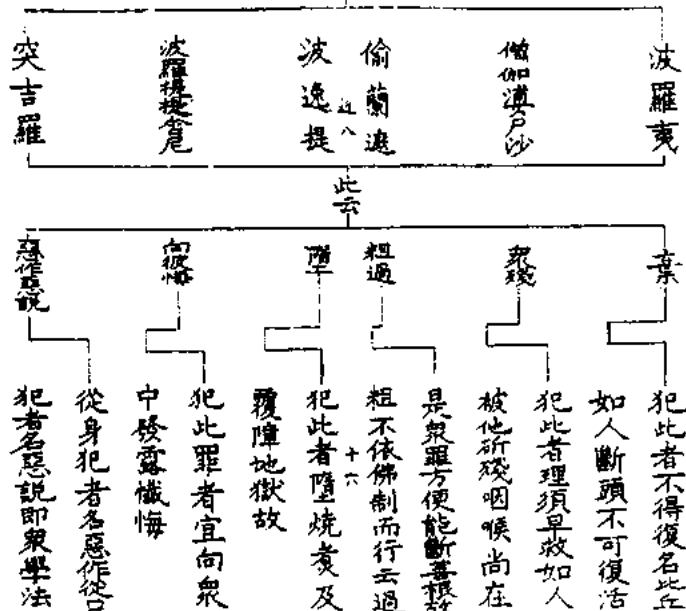 波羅夷
僧伽婆尸沙
偷蘭遮
波逸提
近八
波羅提提舍尼
突吉羅
此云
棄
眾殘
粗過
墮
向彼悔
惡作惡說
犯此者不得復名比丘
如人斷頭不可復活
犯此者理須早救如人
被他斫殘咽喉尚在
是眾罪方便能斷善根故
粗不依佛制而行云過
犯此者墮燒煮及
覆障地獄故
十六
犯此罪者宜向眾
中發露懺悔
從身犯者名惡作從口
犯者名惡說即眾學法